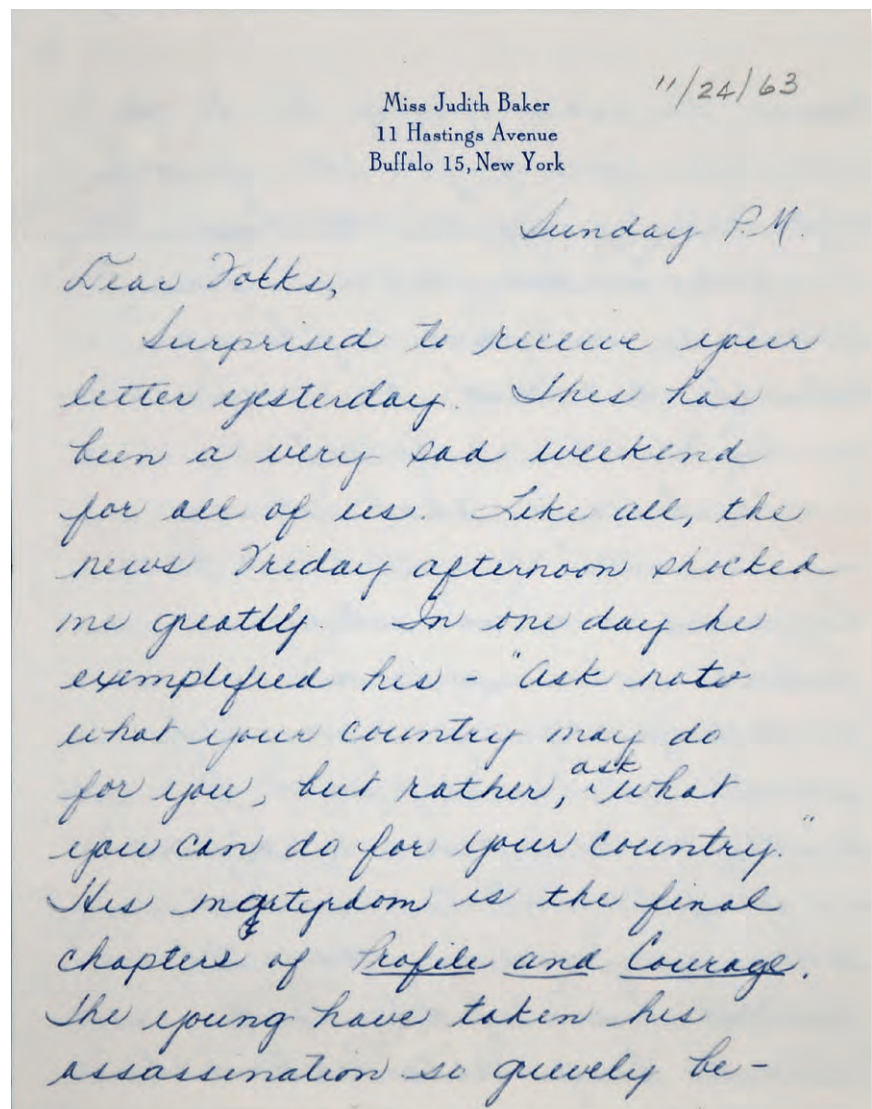 11/24/63
Miss Judith Baker
11 Hastings Avenue
Buffalo 15, New York
Sunday P.M.
Dear Folks,
Surprised to receive your
letter yesterday. This has
been a very sad weekend
for all of us. Like all, the
news Friday afternoon shocked
me greatly. In one day he
exemplified his - "Ask not
what your country may do
for you, but rather, ask what
you can do for your country."
His martyrdom is the final
chapter of Profile and Courage.
The young have taken his
assassination so grievely be-